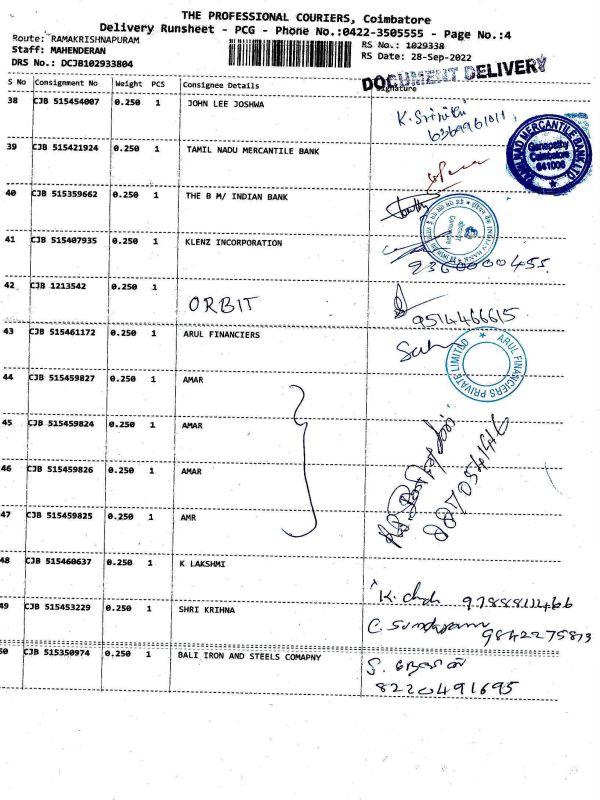 THE PROFESSIONAL COURIERS, Coimbatore
Delivery Runsheet - PCG - Phone No.:0422-3505555 - Page No.:4
Route: RAMAKRISHNAPURAM
Staff: MAHENDERAN
DRS No.: DCJB102933804
RS No.: 1029338
RS Date: 28-Sep-2022
DOCUMENT DELIVERY
S No Consignment No Weight PCS Consignee Details Signature
38 CJB 515454007 0.250 1 JOHN LEE JOSHWA
K. Srinithi
6369961011
39 CJB 515421924 0.250 1 TAMIL NADU MERCANTILE BANK
TAMILNAD MERCANTILE BANK LTD.
Ganapathy
Coimbatore
641006
40 CJB 515359662 0.250 1 THE B M/ INDIAN BANK
INDIAN BANK
41 CJB 515407935 0.250 1 KLENZ INCORPORATION
9360000455
42 CJB 1213542 0.250 1 ORBIT
9514466615
43 CJB 515461172 0.250 1 ARUL FINANCIERS
ARUL FINANCIERS PRIVATE LIMITED
44 CJB 515459827 0.250 1 AMAR
45 CJB 515459824 0.250 1 AMAR
46 CJB 515459826 0.250 1 AMAR
47 CJB 515459825 0.250 1 AMR
48 CJB 515460637 0.250 1 K LAKSHMI
9788811466
49 CJB 515453229 0.250 1 SHRI KRIHNA
C. Sundaram
9842275873
50 CJB 515350974 0.250 1 BALI IRON AND STEELS COMAPNY
8220491695